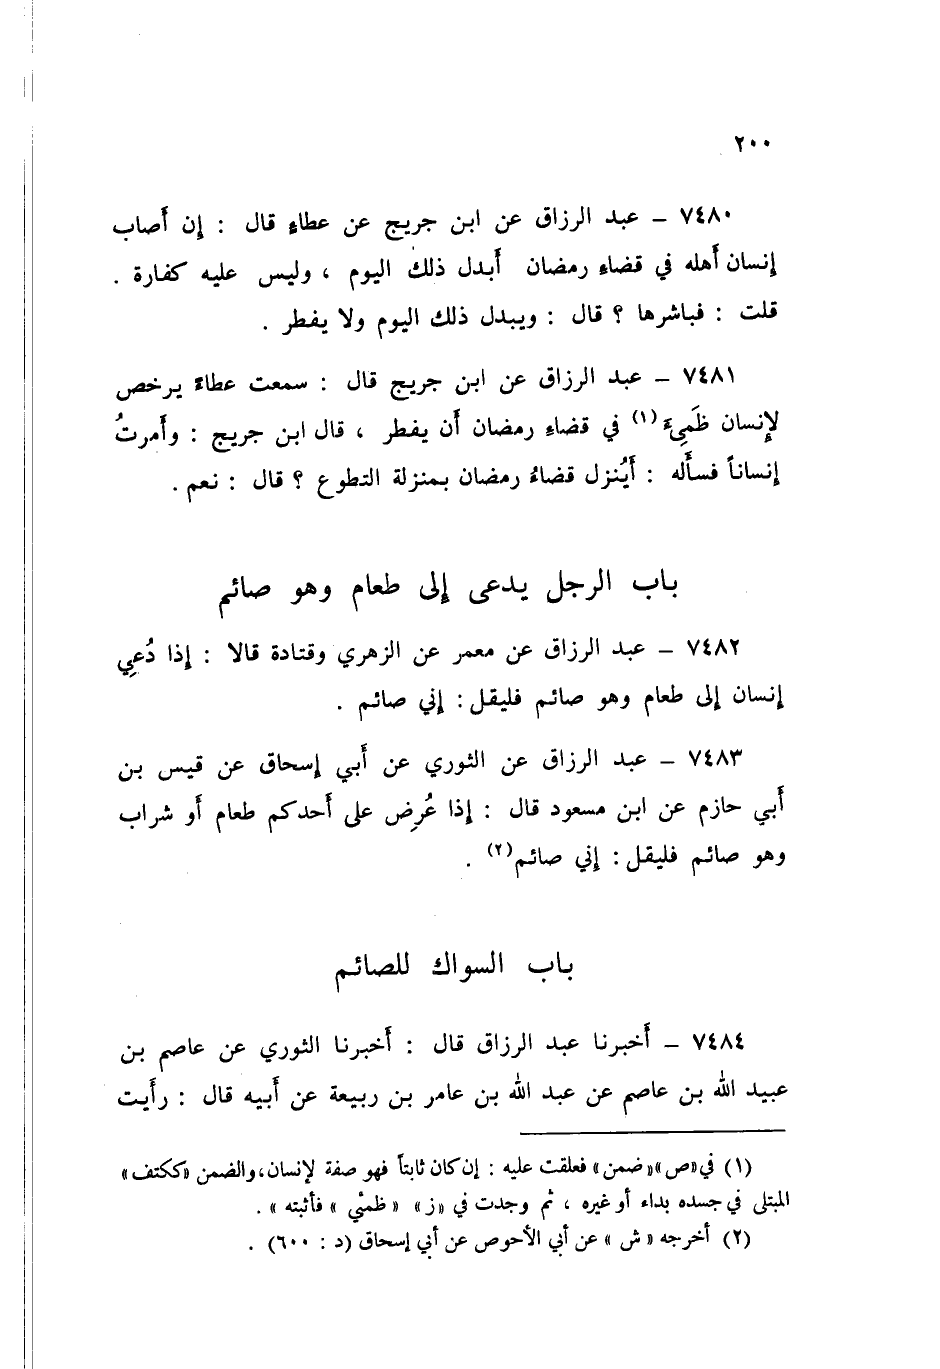 ٢٠٠
٧٤٨٠ – عبد الرزاق عن ابن جريج عن عطاءٍ قال : إن أَصاب
إنسان أَهله في قضاءِ رمضان أَبدل ذلك اليوم ، وليس عليه كفارة .
قلت : فباشرها ؟ قال : ويبدل ذلك اليوم ولا يفطر .
٧٤٨١ – عبد الرزاق عن ابن جريج قال : سمعت عطاءً يرخص
لإِنسان ظَمِيءَ (١) في قضاءِ رمضان أَن يفطر ، قال ابن جريج : وأَمرتُ
إنساناً فسأَله : أَيُنزل قضاءُ رمضان بمنزلة التطوع ؟ قال : نعم .
باب الرجل يدعى إلى طعام وهو صائم
٧٤٨٢ – عبد الرزاق عن معمر عن الزهري وقتادة قالا : إذا دُعِي
إنسان إلى طعام وهو صائم فليقل : إني صائم .
٧٤٨٣ – عبد الرزاق عن الثوري عن أَبي إسحاق عن قيس بن
أَبي حازم عن ابن مسعود قال : إذا عُرِض على أَحدكم طعام أَو شراب
وهو صائم فليقل : إني صائم (٢) .
باب السواك للصائم
٧٤٨٤ – أَخبرنا عبد الرزاق قال : أَخبرنا الثوري عن عاصم بن
عبيد الله بن عاصم عن عبد الله بن عامر بن ربيعة عن أَبيه قال : رأَيت
(١) في «ص» «ضمن» فعلقت عليه : إن كان ثابتاً فهو صفة لإنسان، والضمن «ككتف»
المبتلى في جسده بداء أو غيره ، ثم وجدت في «ز» « ظمئي » فأثبته » .
(٢) أخرجه « ش » عن أبي الأحوص عن أبي إسحاق (د : ٦٠٠) .